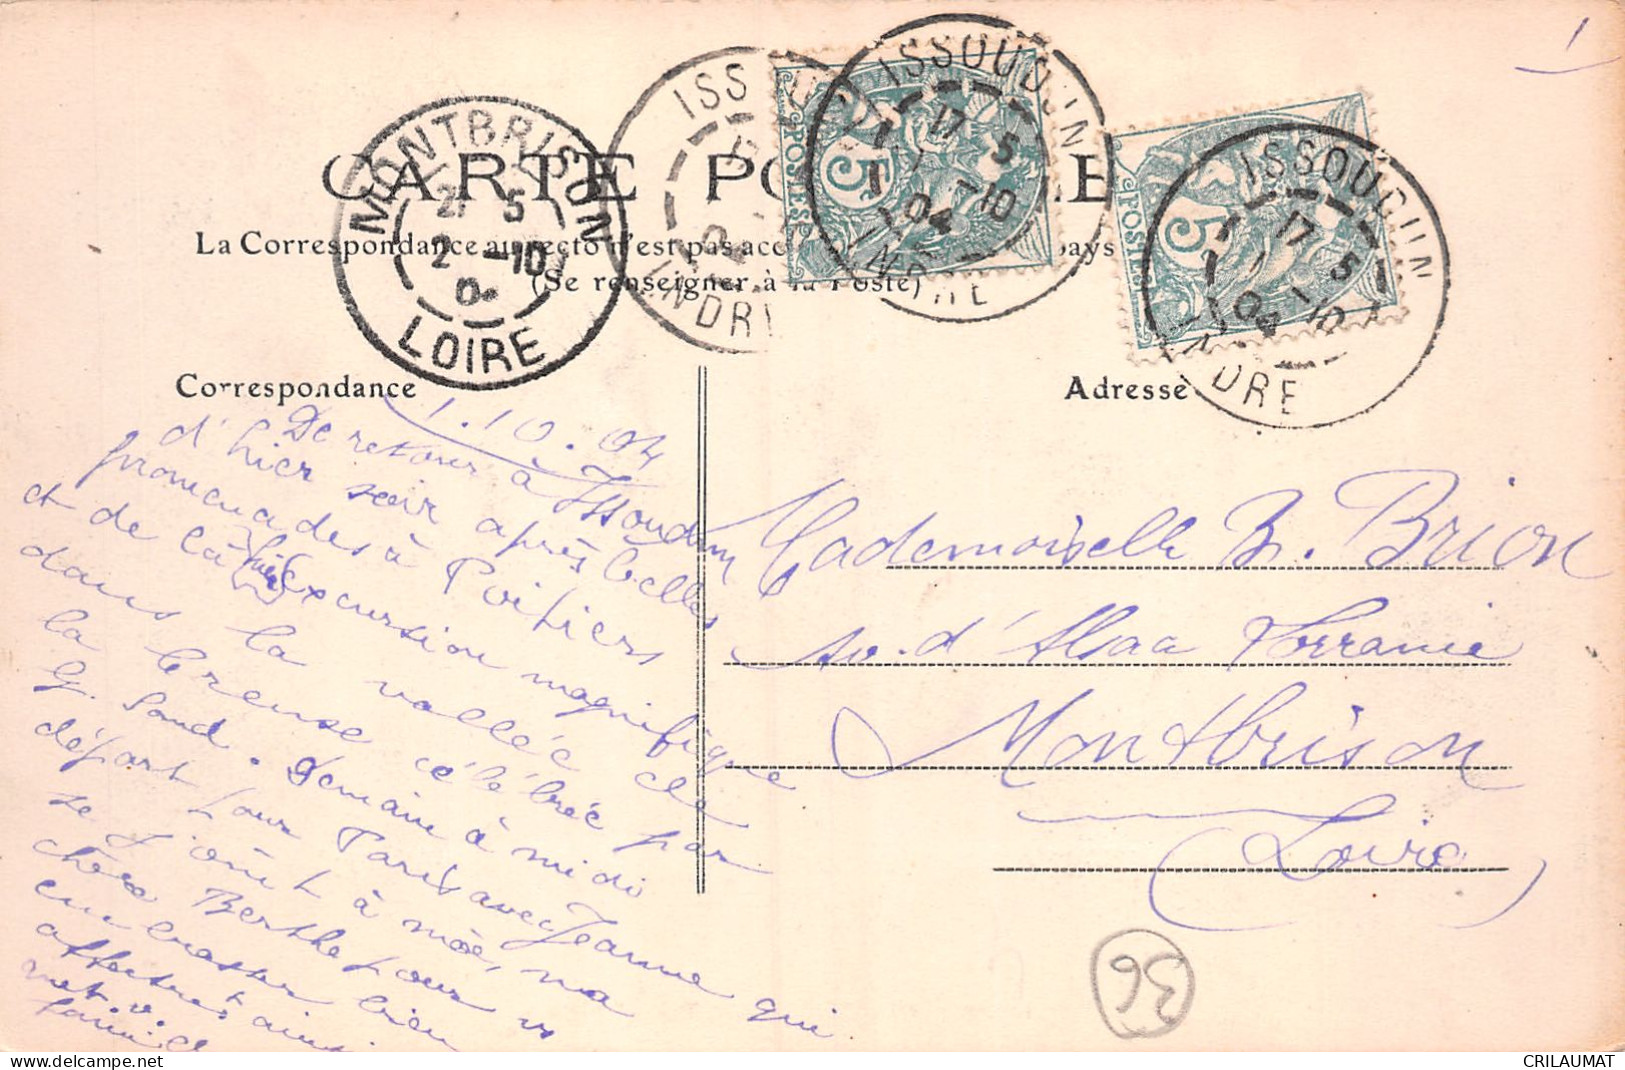 CARTE POSTALE
La Correspondance au recto n'est pas acc pays
(Se renseigner à la Poste)
MONTBRISON
21 5
2 -10
04
LOIRE
ISSOUDUN
INDRE
ISSOUDUN
17 5
1 -10
04
INDRE
ISSOUDUN
17 5
1 10
04
INDRE
5
POSTES
5
POSTES
Correspondance
Adresse
1.10.04
De retour à Issoudun
d'hier soir après belles
promenades à Poitiers
et de là hier excursion magnifique
dans la vallée de
la Creuse célébrée par
G. Sand. Demain à midi
départ pour Paris avec Jeanne qui
se joint à moi, ma
chère Berthe pour vs
embrasser bien
affectt ainsi
que v.
famille
Mademoiselle B. Brion
av. d'Alsace Lorraine
Montbrison
(Loire)
36
CRILAUMAT